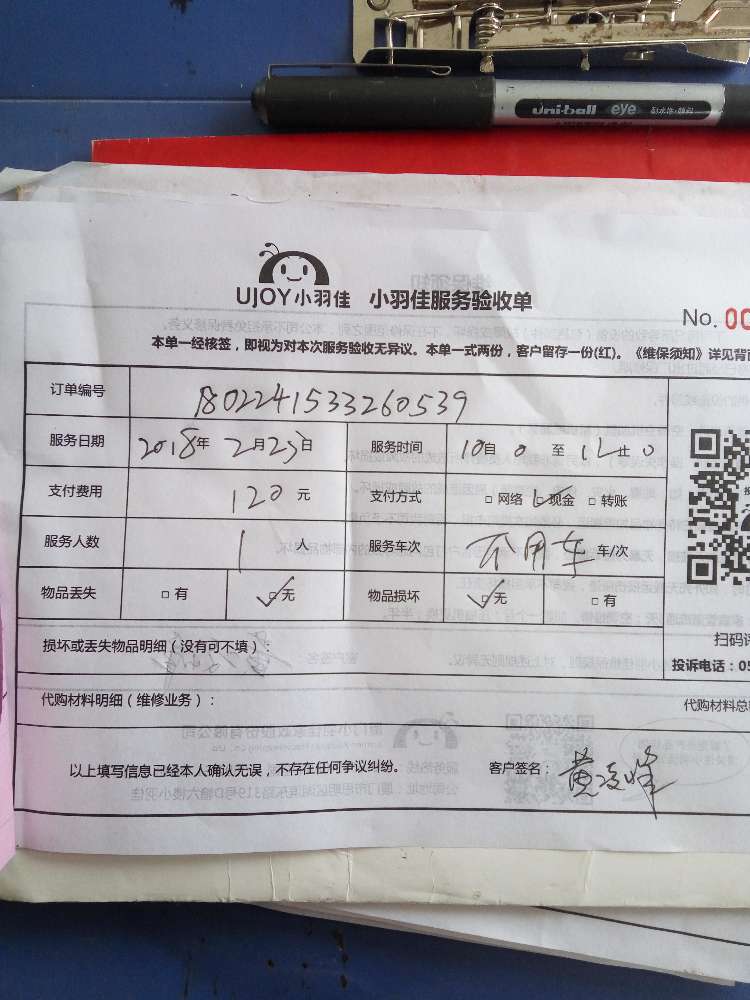 uni-ball eye
UJOY小羽佳 小羽佳服务验收单
No. 00
本单一经核签，即视为对本次服务验收无异议。本单一式两份，客户留存一份(红)。《维保须知》详见背面
订单编号 1802241533260539
服务日期 2018年2月25日 服务时间 10自0至12止0
支付费用 120元 支付方式 □网络 ☑现金 □转账
服务人数 1人 服务车次 不用车 车/次
物品丢失 □有 ☑无 物品损坏 ☑无 □有
损坏或丢失物品明细（没有可不填）：
扫码评
投诉电话：05
代购材料明细（维修业务）： 代购材料总
以上填写信息已经本人确认无误，不存在任何争议纠纷。 客户签名：黄凌峰